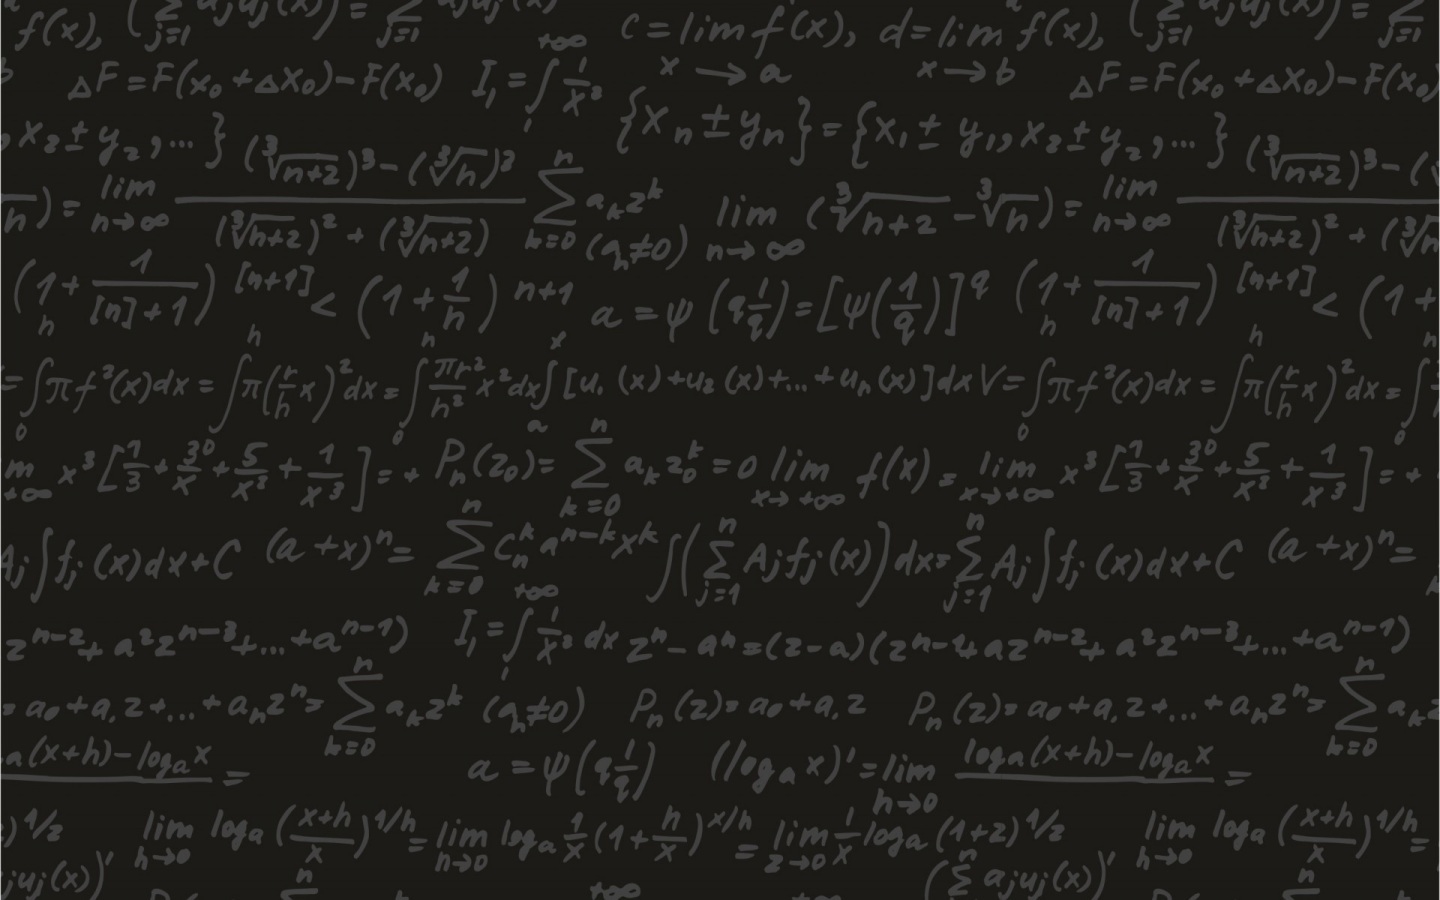 f(x), (∑_{j=1} a_j u_j(x)) = ∑_{j=1} a_j u_j(x) c = lim_{x→a} f(x), d = lim_{x→b} f(x), (∑_{j=1} a_j u_j(x)) = ∑_{j=1}
b ΔF = F(x₀ + Δx₀) − F(x₀) I₁ = ∫₁^{+∞} 1/x² ΔF = F(x₀ + Δx₀) − F(x₀)
x₂ ± y₂, ... } {xₙ ± yₙ} = {x₁ ± y₁, x₂ ± y₂, ... }
n) = lim_{n→∞} ((∛n+2)³ − (∛n)³)/((∛n+2)² + (∛n+2)) ∑_{k=0}^{n} a_k z^k (aₙ≠0) lim_{n→∞} (∛n+2 − ∛n) = lim_{n→∞} (∛n+2)³ − ( / (∛n+2)² + (∛n
(1 + 1/([n]+1))^{[n+1]} < (1 + 1/n)^{n+1} a = ψ(q 1/q) = [ψ(1/q)]^q (1 + 1/([n]+1))^{[n+1]} < (1 +
= ∫₀^h πf²(x)dx = ∫₀^h π(r/h x)² dx = ∫₀^h πr²/h² x² dx ∫ₐ^x [u₁(x) + u₂(x) + ... + uₙ(x)]dx V = ∫₀^h πf²(x)dx = ∫₀^h π(r/h x)² dx = ∫₀^h
m_{+∞} x³ [1/3 + 30/x + 5/x² + 1/x³] = + Pₙ(z₀) = ∑_{k=0}^{n} a_k z₀^k = 0 lim_{x→+∞} f(x) = lim_{x→+∞} x³ [1/3 + 30/x + 5/x² + 1/x³] = +
A_j ∫ f_j(x)dx + C (a + x)ⁿ = ∑_{k=0}^{n} Cₙ^k a^{n−k} x^k ∫(∑_{j=1}^{n} A_j f_j(x))dx = ∑_{j=1}^{n} A_j ∫ f_j(x)dx + C (a + x)ⁿ =
z^{n−2} + a²z^{n−3} + ... + a^{n−1}) I₁ = ∫₁^{+∞} 1/x² dx zⁿ − aⁿ = (z − a)(z^{n−1} + az^{n−2} + a²z^{n−3} + ... + a^{n−1})
= a₀ + a₁z + ... + aₙzⁿ = ∑_{k=0}^{n} a_k z^k (aₙ≠0) Pₙ(z) = a₀ + a₁z Pₙ(z) = a₀ + a₁z + ... + aₙzⁿ = ∑_{k=0}^{n} a_k z
a(x+h) − logₐx = a = ψ(q 1/q) (logₐx)' = lim_{h→0} logₐ(x+h) − logₐx =
)^{1/z} lim_{h→0} logₐ((x+h)/x)^{1/h} = lim_{h→0} logₐ 1/x (1 + h/x)^{x/h} = lim_{z→0} 1/x logₐ(1+z)^{1/z} lim_{h→0} logₐ((x+h)/x)^{1/h} =
_j u_j(x))' n +∞ (∑^{n} a_j u_j(x))' n